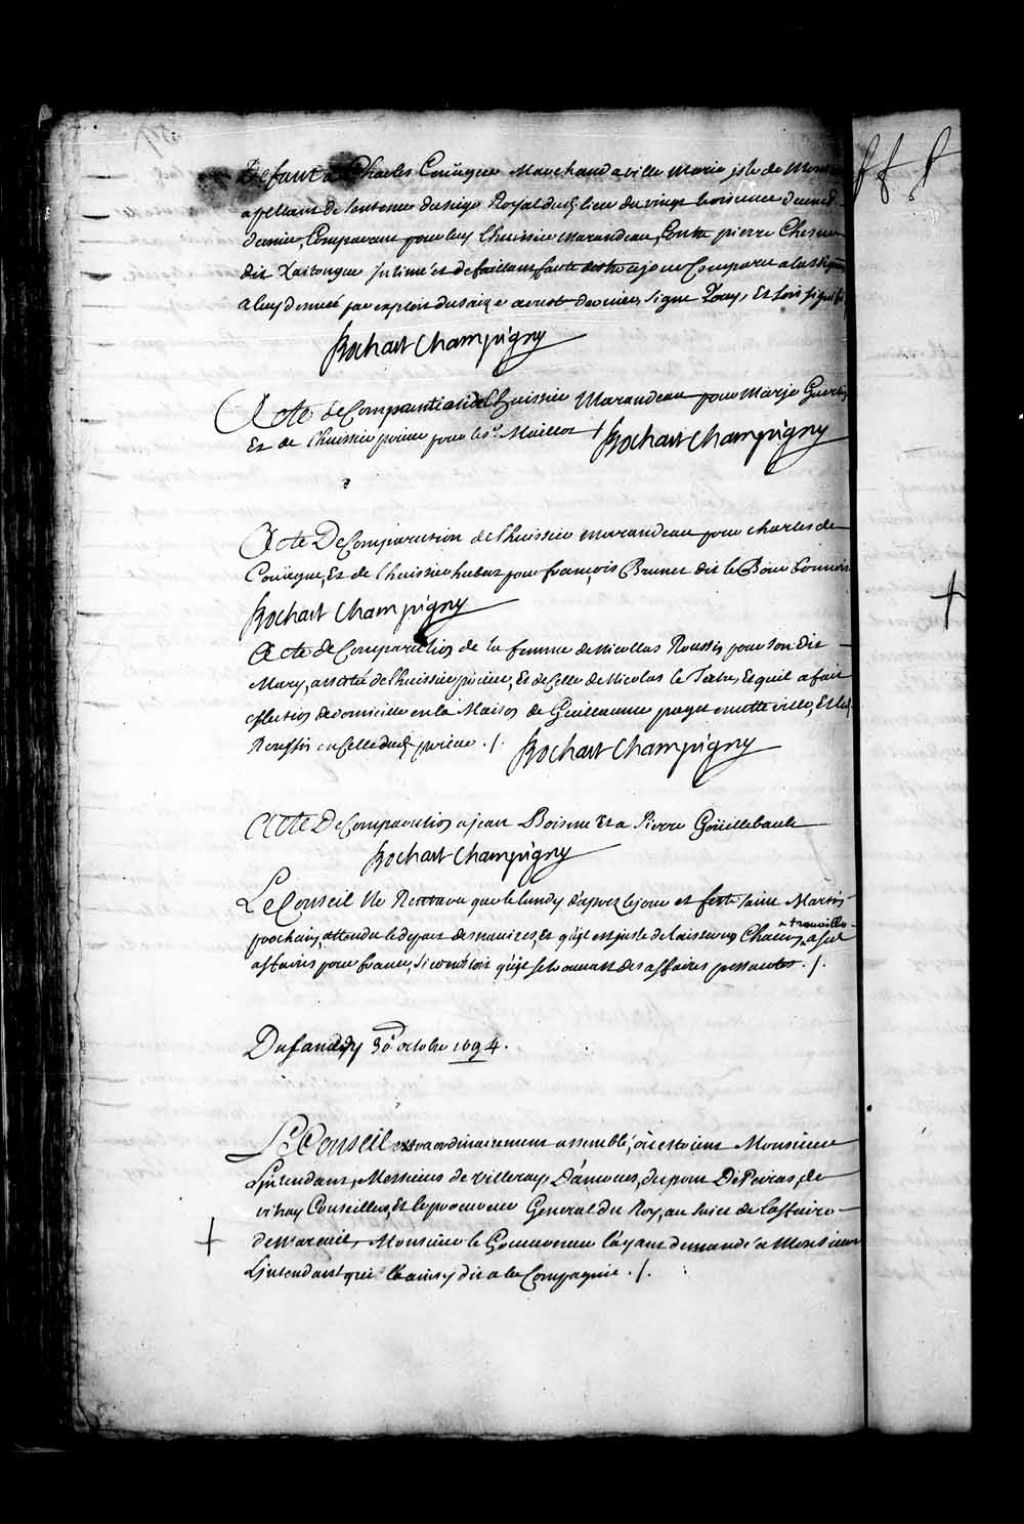 Defaut a Charles Coüagne Marchand a ville Marie isle de
apellant de sentence du siege Royal dud. lieu du vingt troisieme
dernier, Comparant pour luy l'huissier Marandeau, Contre pierre Chesne
dit Xaitongue Intimé et defaillant faute destre ajour Comparu a
a luy donneé par exploit du saize aoust dernier, signé Lory, Et soit signifié
Bochart Champigny
Acte de Comparution de l'huissier Marandeau pour Marie Guertin
Et de l'huissier prieur pour le Sr. Maillot /. Bochart Champigny
Acte De Comparution de l'huissier Marandeau pour charles de
Coüagne, Et de l'huissier hubert pour françois Brunet dit le
Bochart Champigny
Acte de Comparution de la femme de Nicollas Roussin pour son dit
Mary, assisté de l'huissier prieur, Et de Celle de Nicolas le Tartre, Et quil a fait
eslection de domicille en la Maison de Guillaume paget en cette ville, Et led.
Roussin en Celle dud. prieur ./. Bochart Champigny
Acte De Comparution a jean Boisme Et a Pierre Goüillebault
Bochart Champigny
Le Conseil Ne Rentrera que le lundy d'apres le jour et feste saint Martin
prochain, attendu le depart des navires, Et quil est juste de laisser un Chacun travailler a ses
affaires pour france, si ce n'estoit quil se trouvast des affaires pressantes ./.
Du samedy 30e octobre 1694.
Le Conseil extraordinairement assemblé, où estoient Monsieur
L'intendant, Messieurs de Villeray, Damours, dupont De Peiras, de
vitray Conseillers, Et le procureur General du Roy, au sujet de l'affaire
de Mareuil, Monsieur le Gouverneur l'ayant demandé a Monsieur
L'intendant qui l'a ainsy dit a la Compagnie ./.